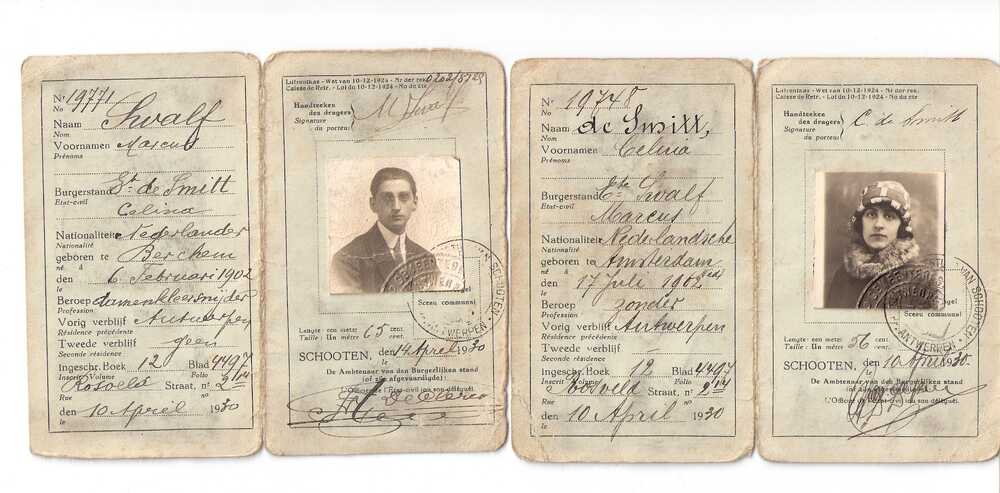 Nr 19771
No
Naam Swalf
Nom
Voornamen Marcus
Prénoms
Burgerstand Et de Smitt
Etat-civil
Celina
Nationaliteit Nederlander
Nationalité
geboren te Berchem
né à
den 6 Februari 1902
le
Beroep dameskleersnijder
Profession
Vorig verblijf Antwerpen
Résidence précédente
Tweede verblijf geen
Seconde résidence
Ingeschr. Boek 12 Blad 4497
Inscrit Volume Folio
Rosveld Straat, nr 214
Rue
den 10 April 1930
le
Lijfrentkas - Wet van 10-12-1924 - Nr der rek.
Caisse de Retr. - Loi du 10-12-1924 - No du cte
Handteeken
des dragers
Signature
du porteur
M Swalf
Sceau communal
VAN SCHOTEN
ANTWERPEN
Lengte : een meter 65 cent.
Taille : Un mètre
SCHOOTEN, den 14 April 1930
le
De Ambtenaar van den Burgerlijken stand
(of zijn afgevaardigde) :
L'Officier de l'Etat-civil (ou son délégué),
Nr 19748
No
Naam de Smitt,
Nom
Voornamen Celina
Prénoms
Burgerstand Swalf
Etat-civil
Marcus
Nationaliteit Nederlandsche
Nationalité
geboren te Amsterdam
né à
den 17 juli 1902
le
Beroep zonder
Profession
Vorig verblijf Antwerpen
Résidence précédente
Tweede verblijf
Seconde résidence
Ingeschr. Boek 12 Blad 4497
Inscrit Volume Folio
Rosveld Straat, nr 214
Rue
den 10 April 1930
le
Lijfrentkas - Wet van 10-12-1924 - Nr der rek.
Caisse de Retr. - Loi du 10-12-1924 - No du cte
Handteeken
des dragers
Signature
du porteur
C. de Smitt
Sceau communal
VAN SCHOTEN
ANTWERPEN
Lengte : een meter 56 cent.
Taille : Un mètre
SCHOOTEN, den 10 April 1930
le
De Ambtenaar van den Burgerlijken stand
(of zijn afgevaardigde) :
L'Officier de l'Etat-civil (ou son délégué),